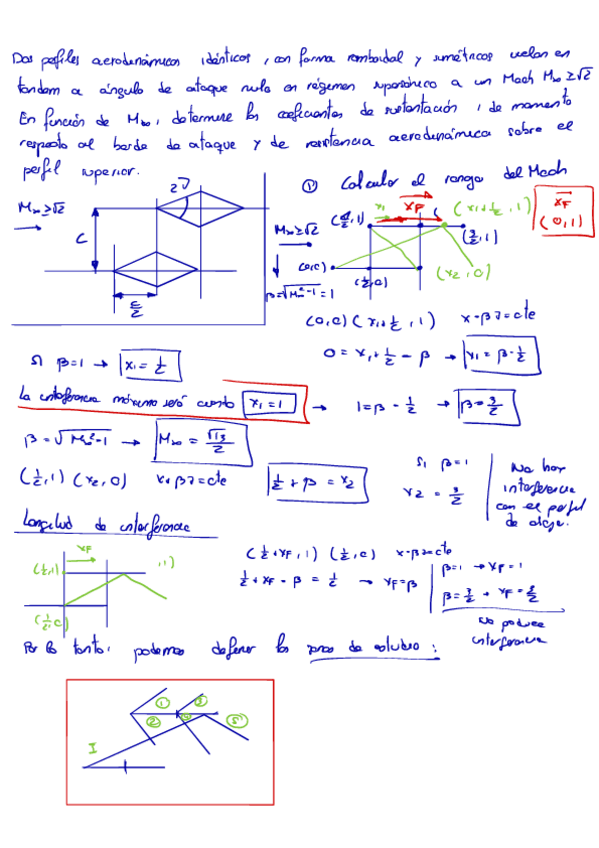 Dos perfiles aerodinámicos idénticos, con forma romboidal y simétricos vuelan en
tandem a ángulo de ataque nulo en régimen supersónico a un Mach M∞ ≥ √2
En función de M∞, determine los coeficientes de sustentación, de momento
respecto al borde de ataque y de resistencia aerodinámica sobre el
perfil superior.
① Calcular el rango del Mach
2
M∞ ≥ √2
C
C/2
M∞ ≥ √2
β = √M∞²-1 = 1
x1
xF
(x1+1/2, 1)
(1/2, 1)
(3/2, 1)
(0,0)
(1/2, 0)
(x2, 0)
xF
(0,1)
(0,0) (x1+1/2, 1) x-βz=cte
Si β=1 → x1 = 1/2
0 = x1 + 1/2 - β → x1 = β - 1/2
La interferencia máxima será cuando x1 = 1 → 1 = β - 1/2 → β = 3/2
β = √M∞²-1 → M∞ = √13/2
(1/2, 1) (x2, 0) x+βz=cte 1/2 + β = x2
Si β=1
x2 = 3/2
No hay
interferencia
con el perfil
de abajo.
Longitud de interferencia
xF
(1/2, 1)
, 1)
(1/2, 0)
(1/2+xF, 1) (1/2, 0) x-βz=cte
1/2 + xF - β = 1/2 → xF = β
β=1 → xF = 1
β = 3/2 → xF = 3/2
No produce
interferencia
Por lo tanto, podemos definir las zonas de estudio:
① ③
② ④ ⑤
I